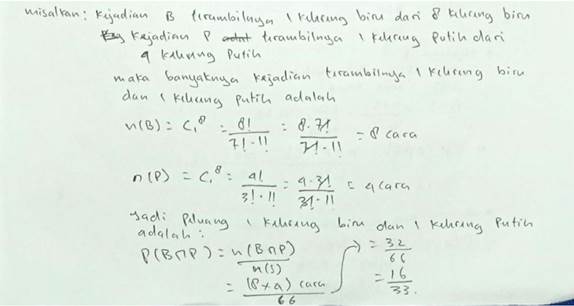 misalkan: Kejadian B terambilnya 1 kelereng biru dari 8 kelereng biru
Kejadian P terambilnya 1 kelereng putih dari
4 kelereng putih
maka banyaknya kejadian terambilnya 1 kelereng biru
dan 1 kelereng putih adalah
n(B) = C₁⁸ = 8!/(7!·1!) = 8·7!/(7!·1!) = 8 cara
n(P) = C₁⁸ = 4!/(3!·1!) = 4·3!/(3!·1!) = 4 cara
Jadi Peluang 1 kelereng biru dan 1 kelereng putih
adalah:
P(B∩P) = n(B∩P)/n(S)
= (8×4) cara/66
= 32/66
= 16/33.